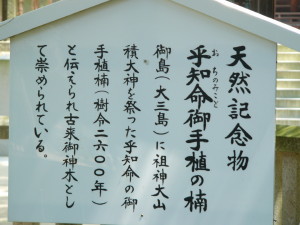 天然記念物
乎知命御手植の楠
おちのみこと
御島(大三島)に祖神大山
積大神を祭った乎知命の御
手植楠(樹令二六〇〇年)
と伝えられ古来御神木とし
て崇められている。